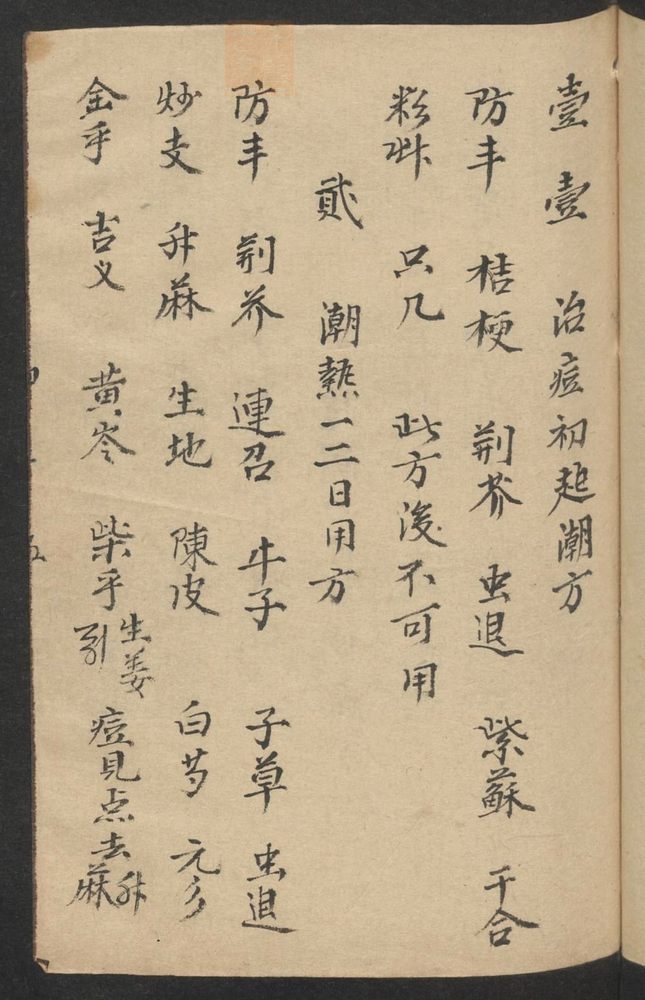 壹壹 治痘初起潮方
防丰 桔梗 荆芥 虫退 紫蘇 干合
粉艸 只几 此方後不可用
貮 潮熱一二日用方
防丰 荆芥 連召 牛子 子草 虫退
炒支 升麻 生地 陳皮 白芍 元參
金乎 吉乂 黄岑 柴乎 生姜引 痘見点去升麻